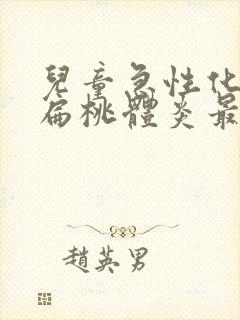 兒童急性化
扁桃體炎最
趙英男